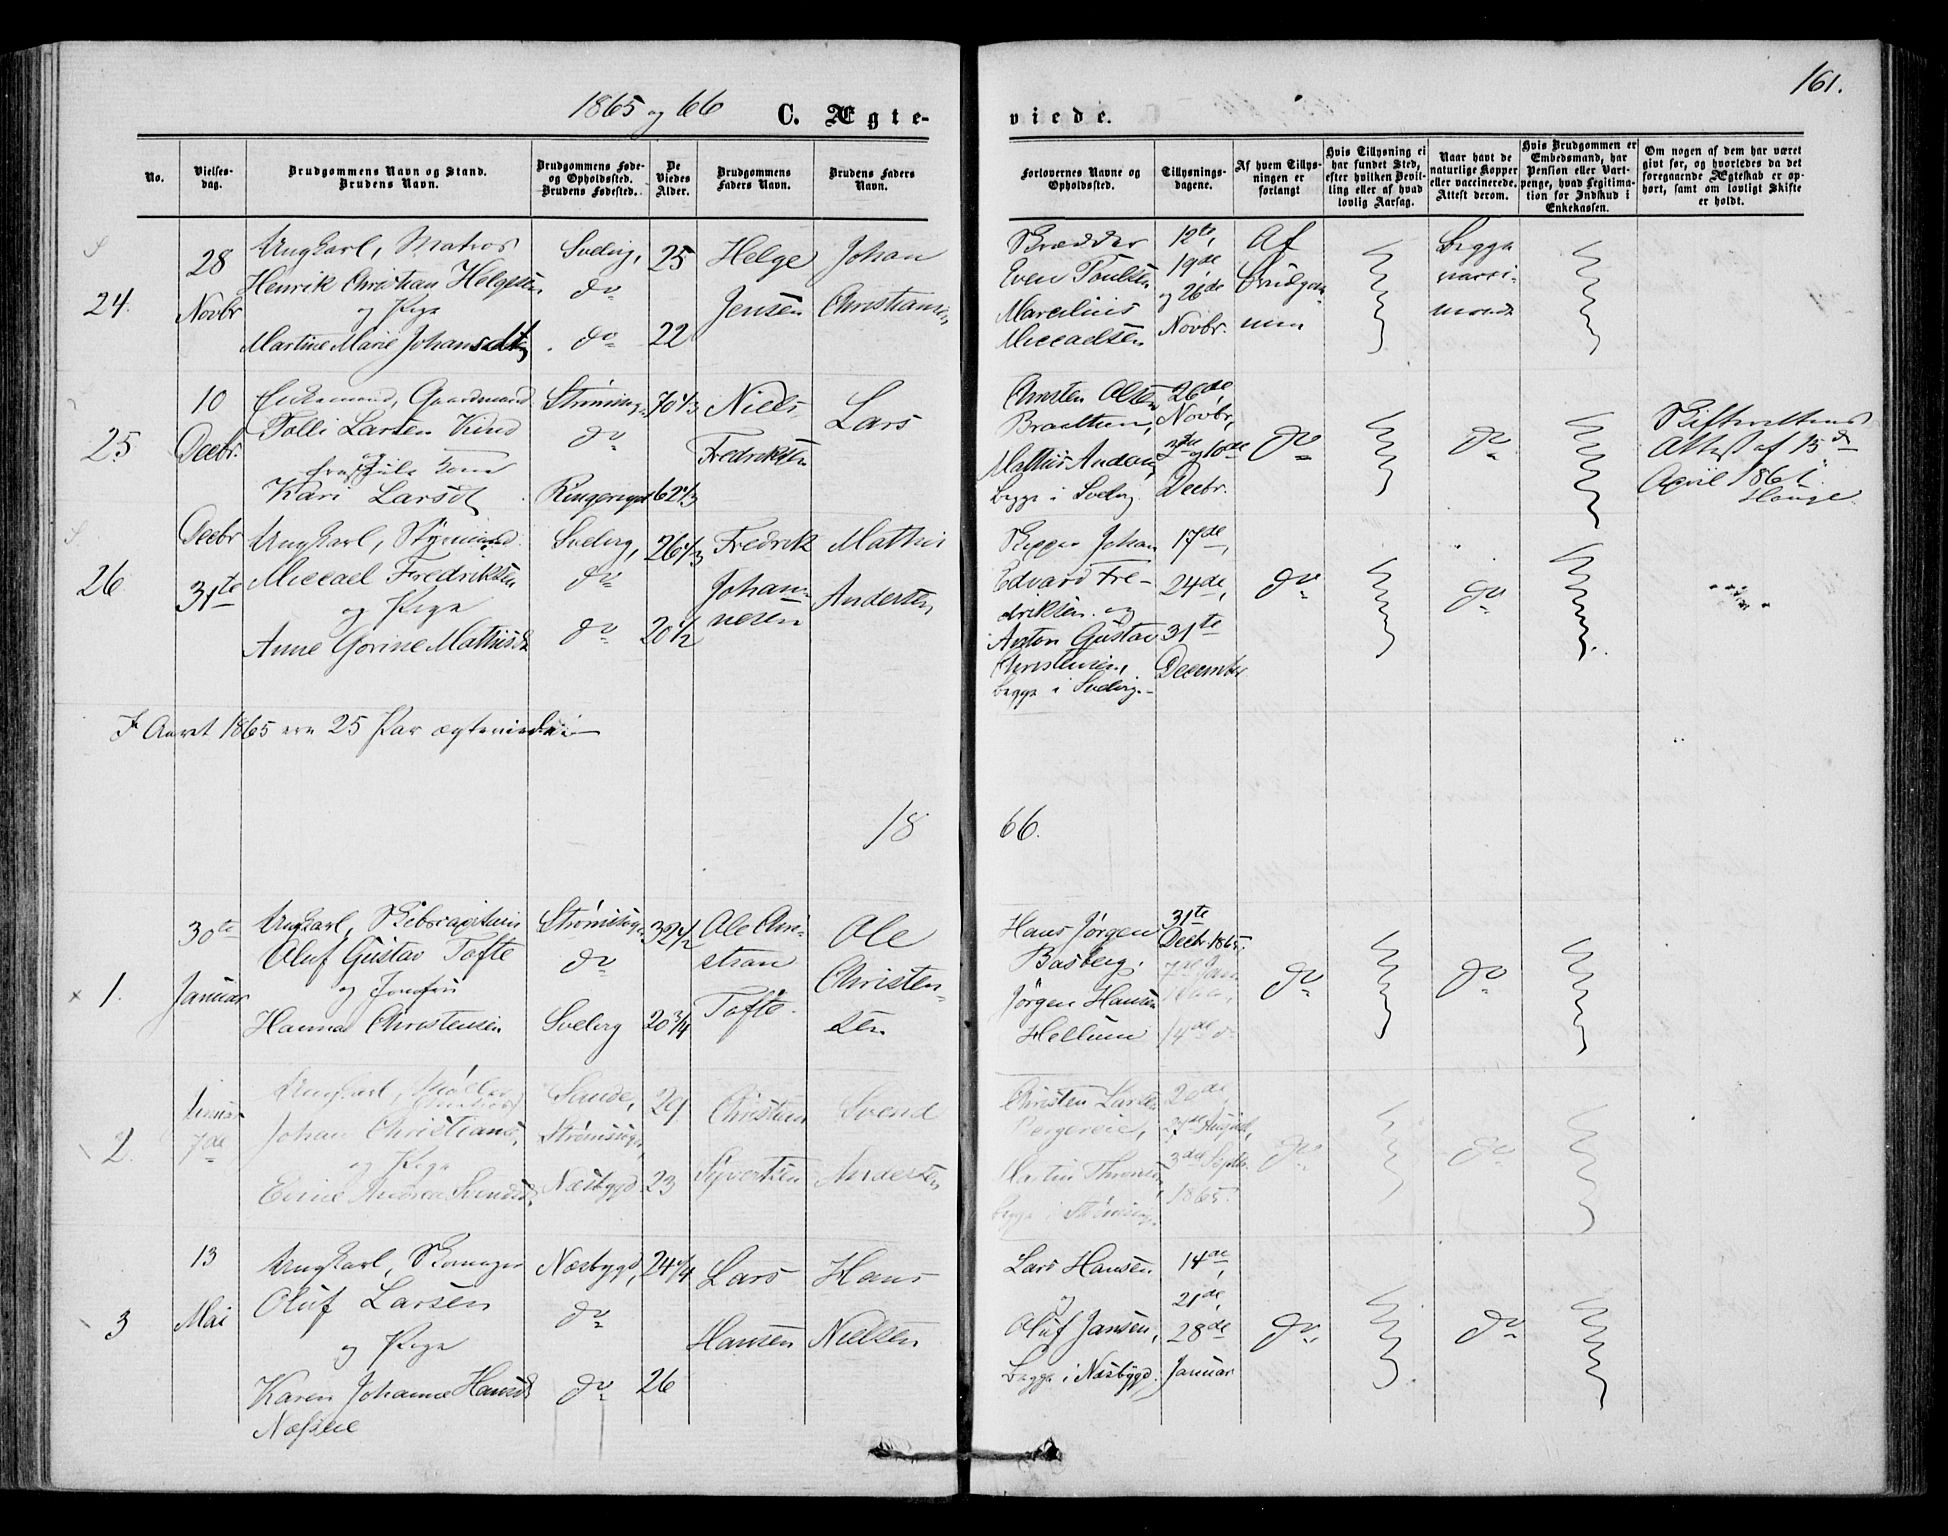 1865 og 66
C. Ægte-
viede.
161.
No.
Vielses-
dag.
Brudgommens Navn og Stand.
Brudens Navn.
Brudgommens Føde-
og Opholdssted.
Brudens Fødested.
De
Viedes
Alder.
Brudgommens
Faders Navn.
Brudens Faders
Navn.
Forlovernes Navne og
Opholdssted.
Tillysnings-
dagene.
Af hvem Tillys-
ningen er
forlangt
Hvis Tillysning ei
har fundet Sted,
efter hvilken Bevil-
ling eller af hvad
lovlig Aarsag.
Naar havt de
naturlige Kopper
eller vaccinerede.
Attest derom.
Hvis Brudgommen er
Embedsmand, har
Pension eller Vart-
penge, hvad Legitima-
tion for Indskud i
Enkekassen.
Om nogen af dem har været
givt før, og hvorledes da det
foregaaende Ægteskab er op-
hørt, samt om lovligt Skifte
er holdt.
24.
28
Novbr
Ungkarl, Matros
Henrik Christian Helgesen
og Pige
Martine Marie Johansdtr
Svelvig,
do
do
25
22
Helge
Jensen
Johan
Christiansen
Brødder
Even Poulsen
Marcelius
Miccaelsen
12te,
19de,
og 26de
Novbr.
Af
Brudgom-
men
Begge
vacci-
nerede
25
10
Decbr.
Enkemand, Gaardmand
Tolli Larsen Kind
Kari Larsdt
Strømsog
do
Ringerige
70 1/3
62 1/3
Niels
Fredriksen
Lars
Christen Olsen
Braatten,
Mathis Anders,
begge i Svelvig
26de,
Novbr,
3die og 10de
Decbr.
do
do
Skifterettens
Attest af 15de
April 1861.
Hauge
26
Decbr
31te
Ungkarl, Styrmand
Miccael Fredriksen
og Pige
Anne Gorine Mathisdt
Svelvig,
do
do
26 1/3
20 1/2
Fredrik
Johan-
nesen
Mathis
Andersen
Skipper Johan
Edvard Fre-
driksen og
Anton Gustav
Christensen,
begge i Svelvig.
17de,
24de,
31te
December
do
do
I Aaret 1865 ere 25 Par ægteviede
18
66.
1.
30te
Januar
Ungkarl, Skibscaptain
Oluf Gustav Tofte
og Jomfru
Hanna Christensen
Strømsoget
do
Svelvig
32 1/2
20 3/4
Ole Chri-
stian
Tofte.
Ole
Christen-
sen
Hans Jørgen
Basberg,
Jørgen Hansen
Hellum
31te
Decbr 1865.
7de Jan
14de do
do
do
2.
Januar
7de
Ungkarl,
Johan Christians,
og Pige
Sande,
Strømsoget,
Næsbygd
29
23
Christian
Syvertsen
Svend
Andersen
Christen Larsen
Bergereie,
Martin
begge i Strømsoget
20de,
27de August,
3die Septbr.
1865.
do
do
3
13
Mai
Ungkarl, Skomager
Oluf Larsen
og Pige
Karen Johanne Hansdt
Næsbygd,
do
do
24 1/4
26
Lars
Hansen
Hans
Nielsen
Lars Hansen
og
Oluf Jansen,
begge i Næsbygd.
14de,
21de,
28de
Januar
do
do